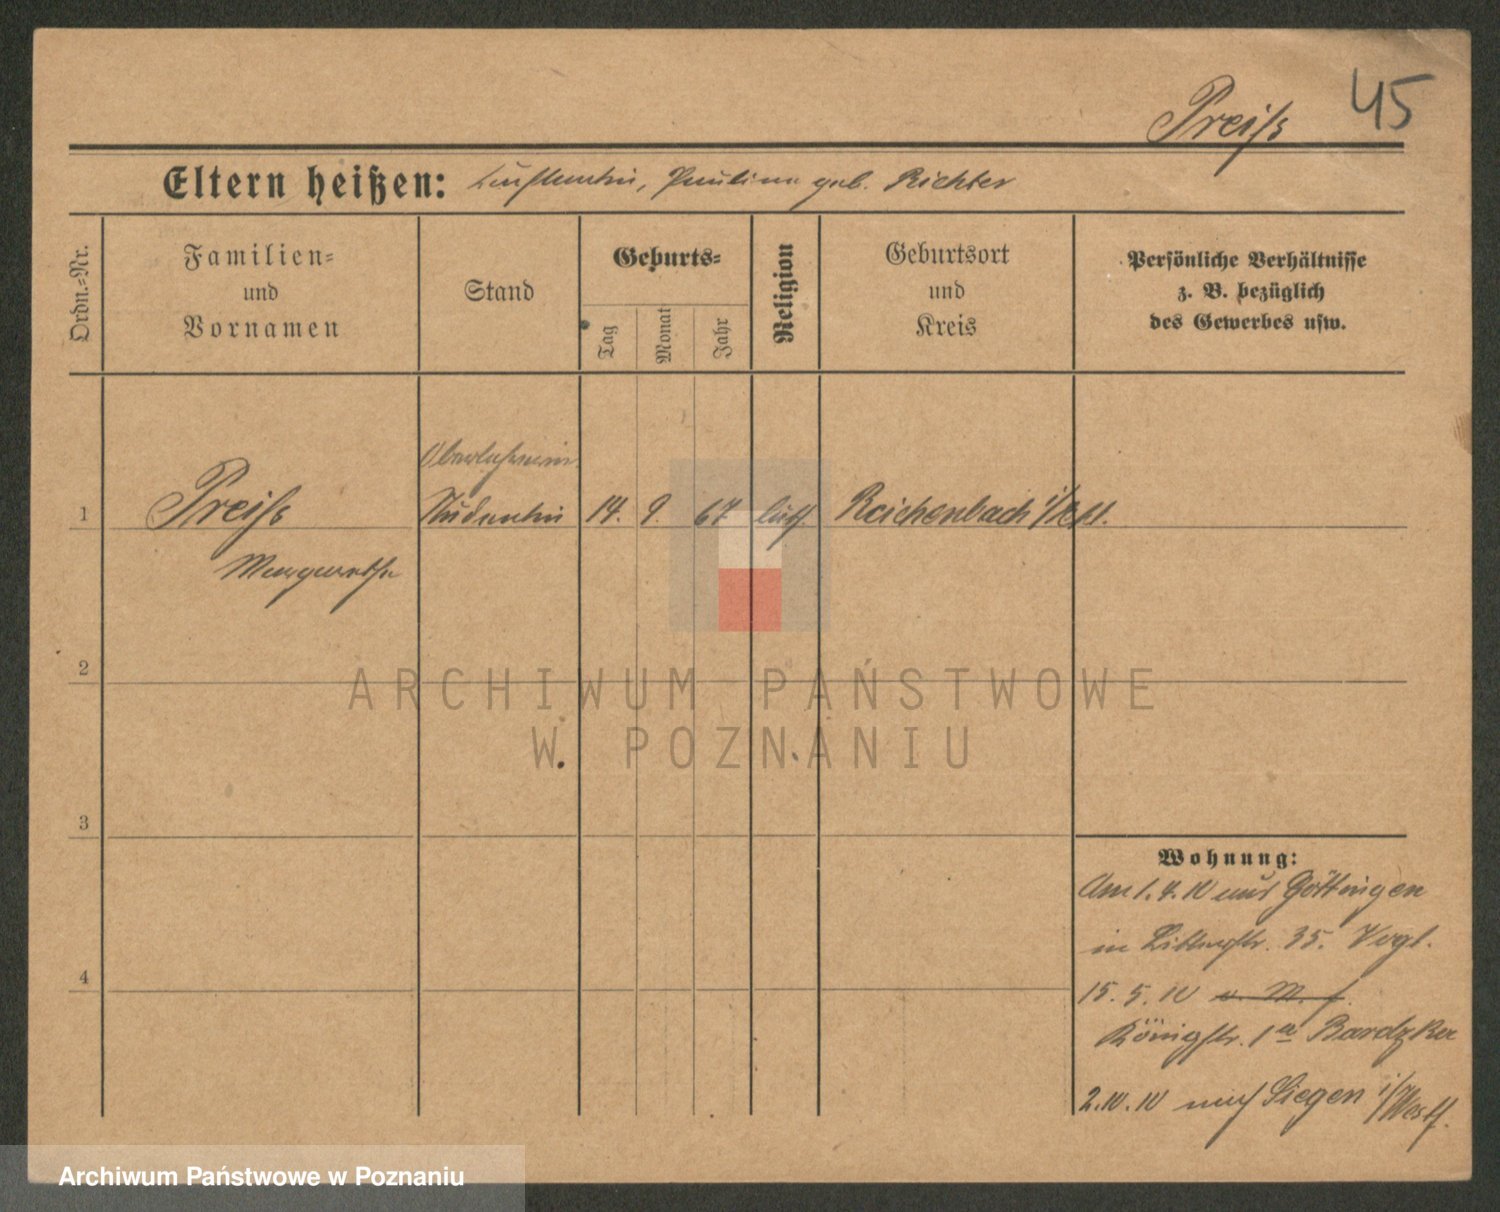 45
Preiss
Eltern heißen: Pauline geb. Richter
Ordn.-Nr.
Familien-
und
Vornamen
Stand
Geburts-
Tag
Monat
Jahr
Religion
Geburtsort
und
Kreis
Persönliche Verhältnisse
z. B. bezüglich
des Gewerbes usw.
Oberlehrerin
1 Preiss Studentin 14. 9. 67 luth. Reichenbach
Margarethe
2
3
4
Wohnung:
Am 1.4.10 aus Göttingen
in 35. Vogt.
15.5.10 v. M. f.
Königstr. 1a Bardzka
2.10.10 nach Siegen i/Westf.
ARCHIWUM PAŃSTWOWE
W POZNANIU
Archiwum Państwowe w Poznaniu